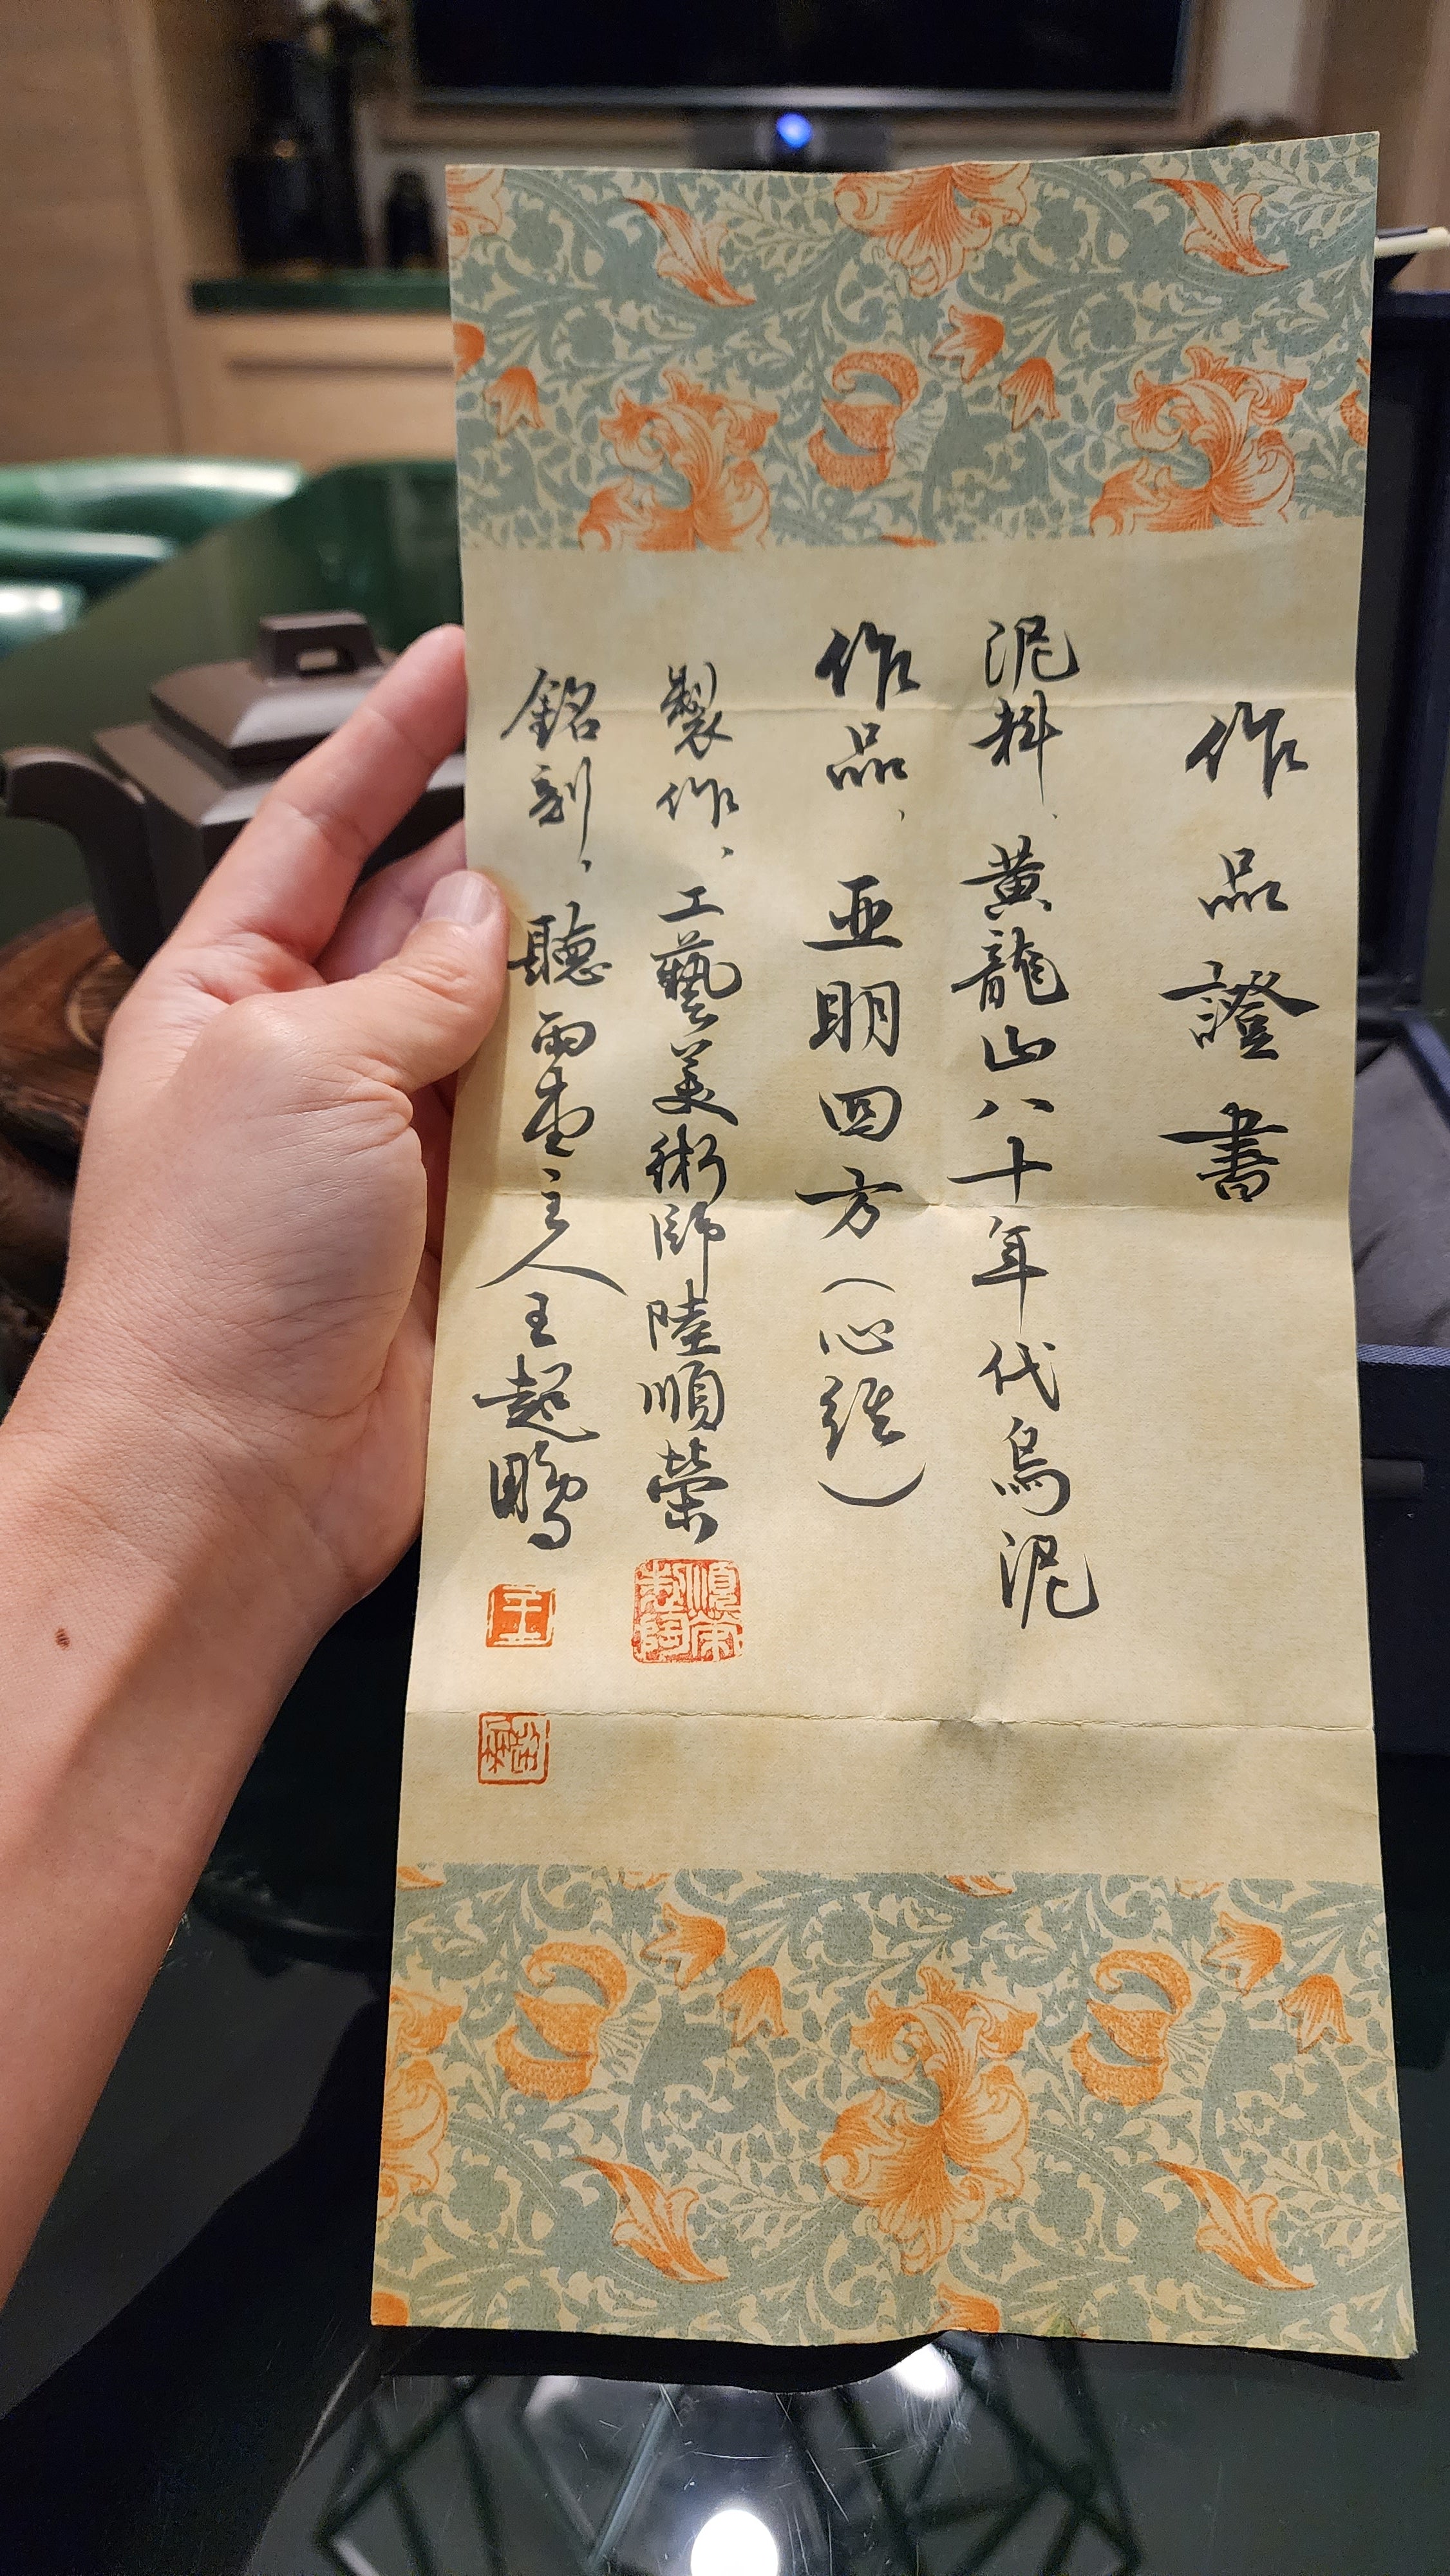 作品證書
泥料、黃龍山八十年代烏泥
作品、亚明四方(心經)
製作、工藝美術師陸順榮
銘刻、聽雨堂主人王起鵬
順榮製陶
王